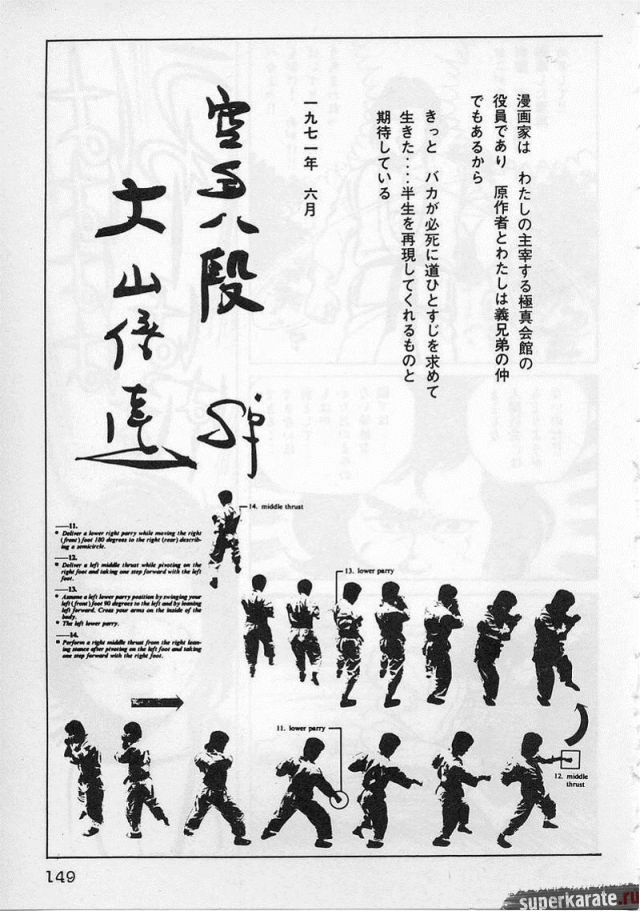 漫画家は　わたしの主宰する極真会館の
役員であり　原作者とわたしは義兄弟の仲
でもあるから
きっと　バカが必死に道ひとすじを求めて
生きた‥‥半生を再現してくれるものと
期待している
一九七一年　六月
空手八段
大山倍達
14. middle thrust
—11.
• Deliver a lower right parry while moving the right
(front) foot 180 degrees to the right (rear) describ-
ing a semicircle.
—12.
• Deliver a left middle thrust while pivoting on the
right foot and taking one step forward with the left
foot.
—13.
• Assume a left lower parry position by swinging your
left (front) foot 90 degrees to the left and by leaning
left forward. Cross your arms on the inside of the
body.
• The left lower parry.
—14.
• Perform a right middle thrust from the right lean-
ing stance after pivoting on the left foot and taking
one step forward with the right foot.
13. lower parry
11. lower parry
12. middle
thrust
149
superkarate.ru